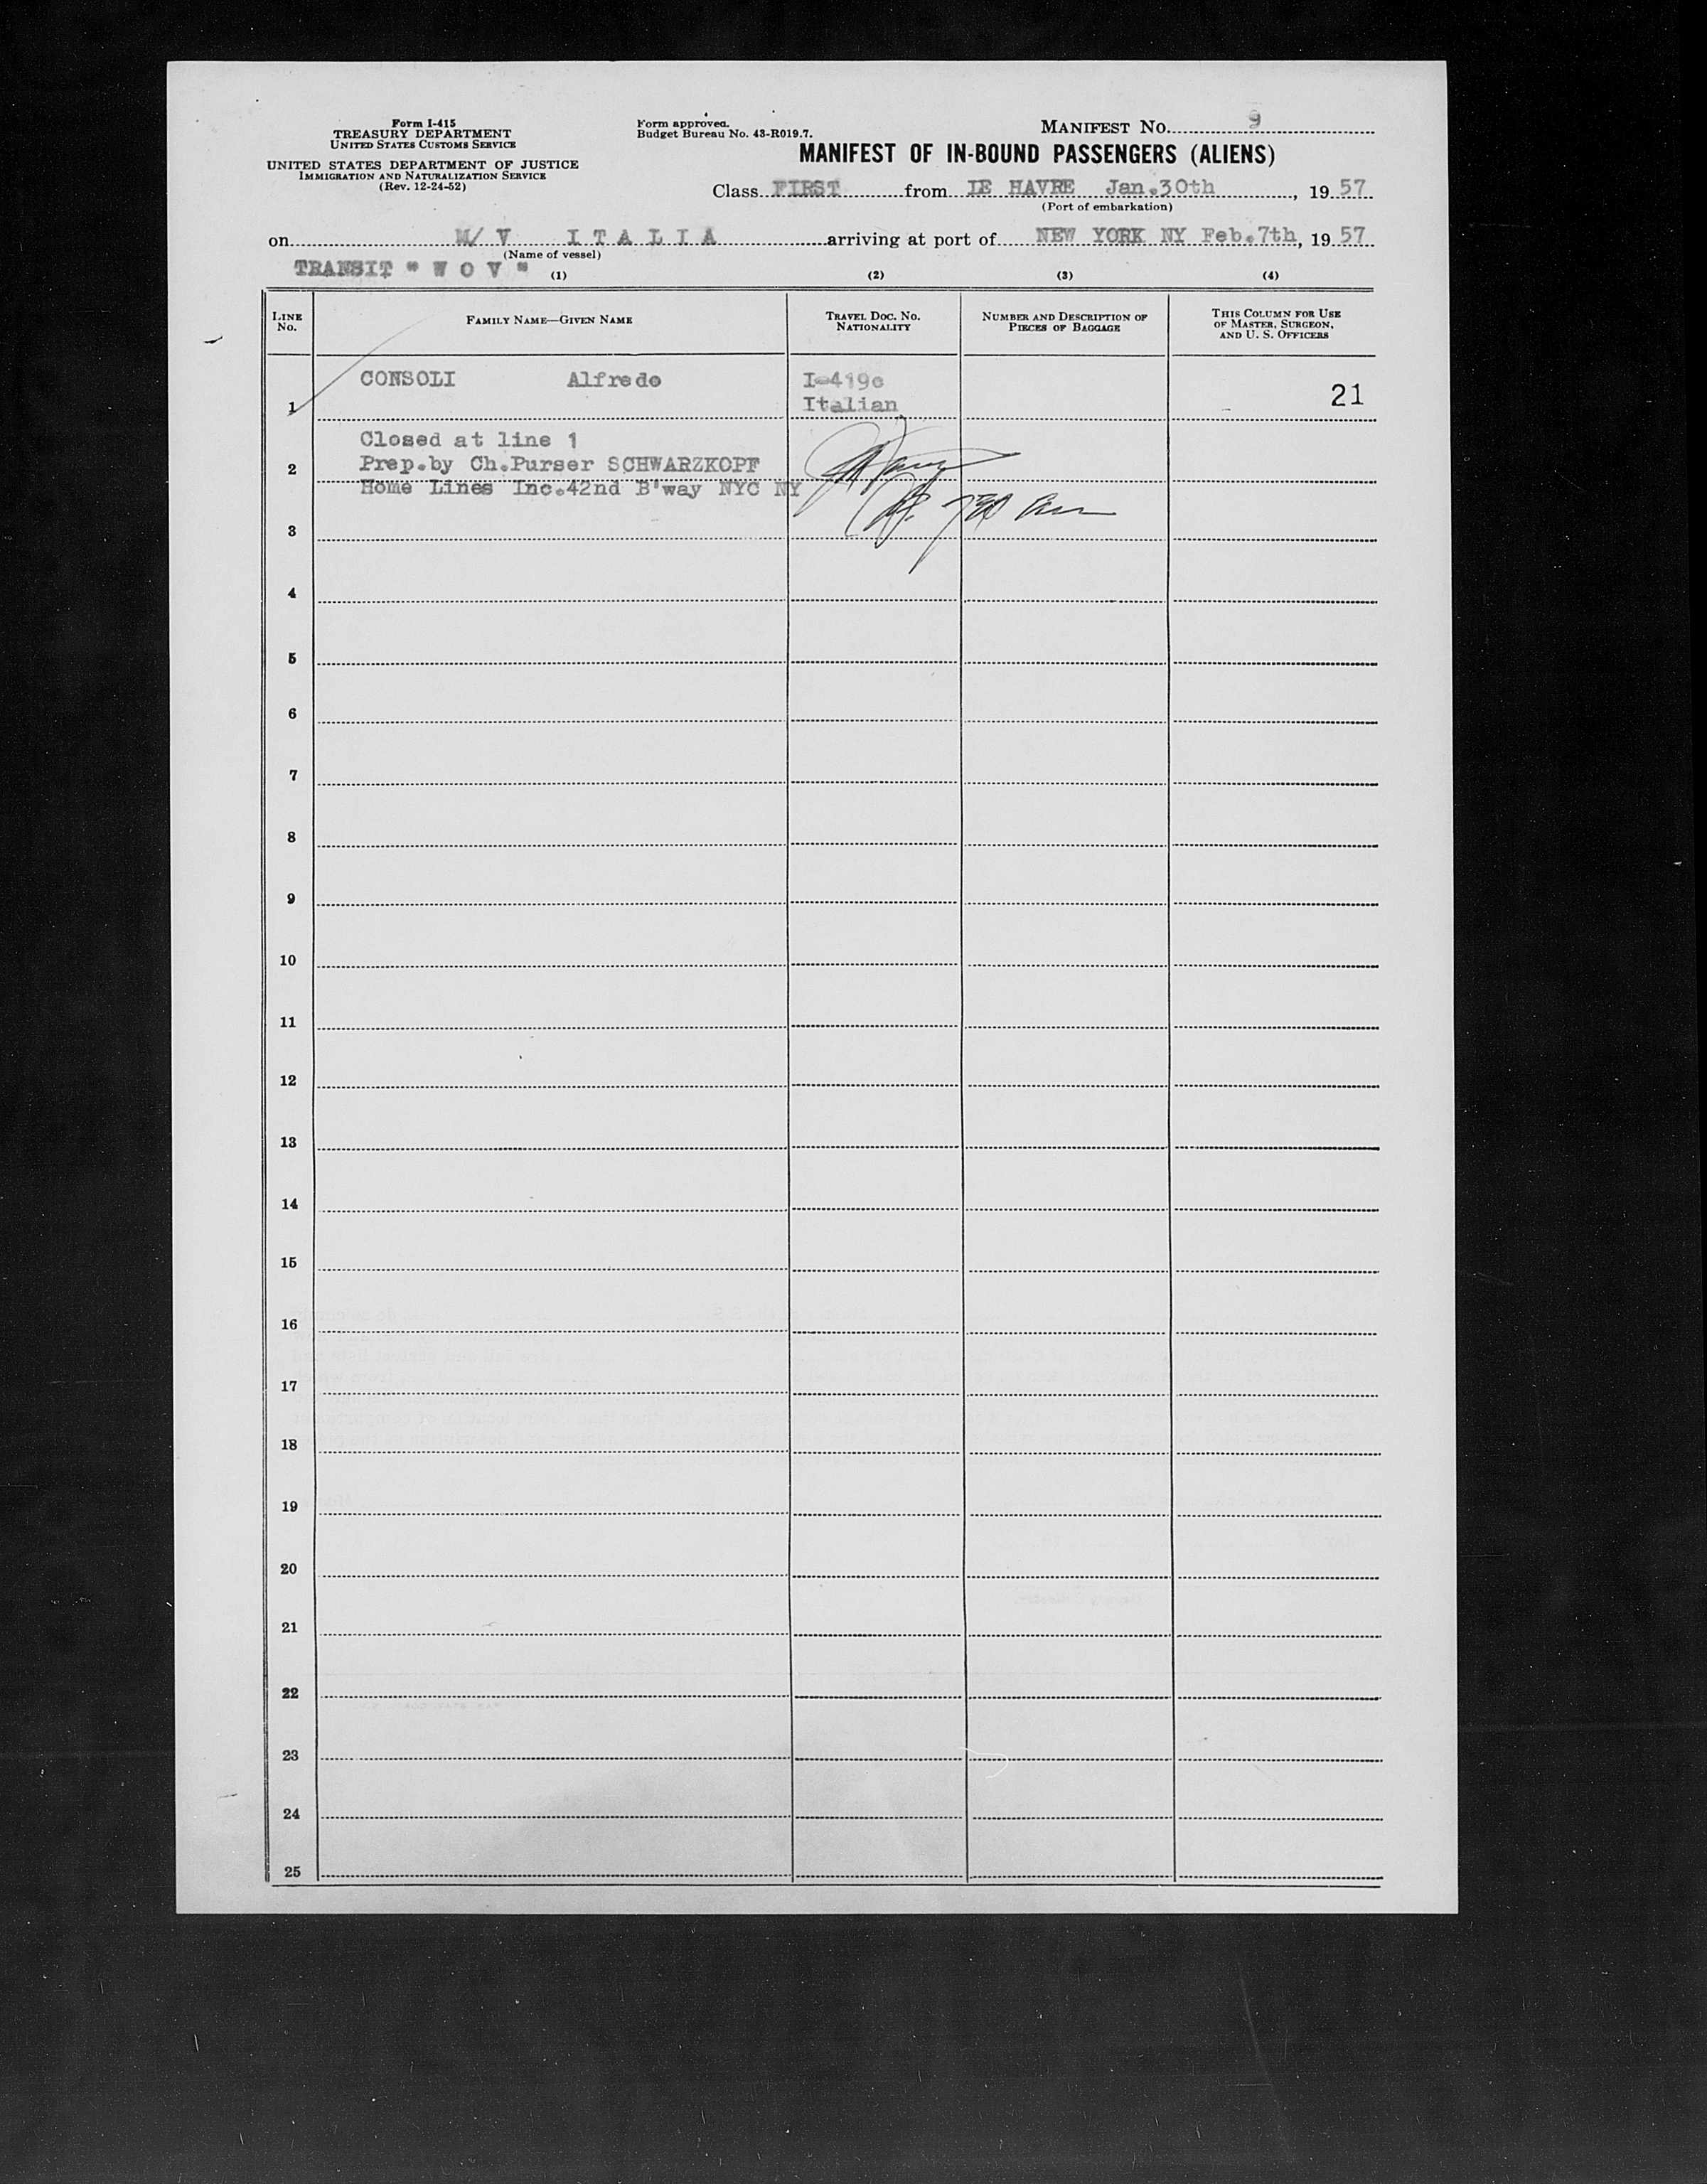 Form I-415
TREASURY DEPARTMENT
UNITED STATES CUSTOMS SERVICE
UNITED STATES DEPARTMENT OF JUSTICE
IMMIGRATION AND NATURALIZATION SERVICE
(Rev. 12-24-52)
Form approved.
Budget Bureau No. 43-R019.7.
MANIFEST No. 9
MANIFEST OF IN-BOUND PASSENGERS (ALIENS)
Class FIRST from LE HAVRE Jan.30th, 19 57
(Port of embarkation)
on M/V ITALIA arriving at port of NEW YORK NY Feb.7th, 19 57
(Name of vessel)
TRANSIT " W O V "
(1) (2) (3) (4)
LINE No. FAMILY NAME—GIVEN NAME TRAVEL DOC. No. NATIONALITY NUMBER AND DESCRIPTION OF PIECES OF BAGGAGE THIS COLUMN FOR USE OF MASTER, SURGEON, AND U. S. OFFICERS
CONSOLI Alfredo I-419c
1 Italian 21
Closed at line 1
2 Prep.by Ch.Purser SCHWARZKOPF
Home Lines Inc.42nd B'way NYC NY
3
4
5
6
7
8
9
10
11
12
13
14
15
16
17
18
19
20
21
22
23
24
25